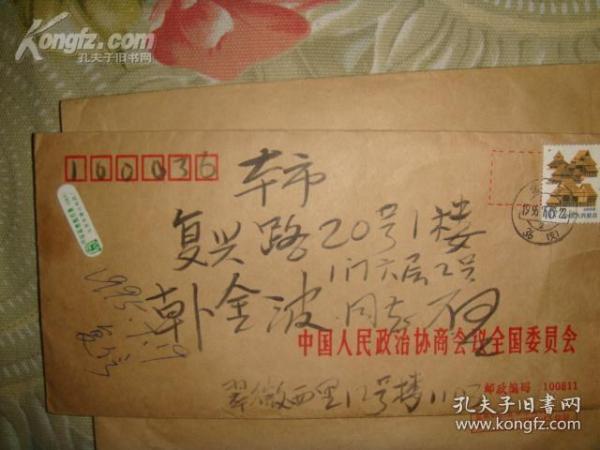 Kongfz.com
孔夫子旧书网
100036
本市
复兴路20号1楼
1门六层2号
韩金波 同志 收
1995.7.19
中国人民政治协商会议全国委员会
翠微西里12号楼110
邮政编码 100811
孔夫子旧书网
www.kongfz.com